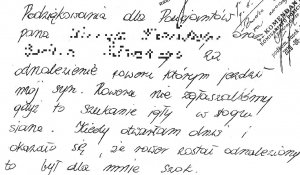 Podziękowania dla Policjantów
pana oraz
za
odnalezienie roweru którym jeździł
mój syn. Roweru nie zgłaszaliśmy
gdyż to szukanie igły w stogu
siana. Kiedy otwarłam drzwi i
okazało się, że rower został odnaleziony
to był dla mnie szok.